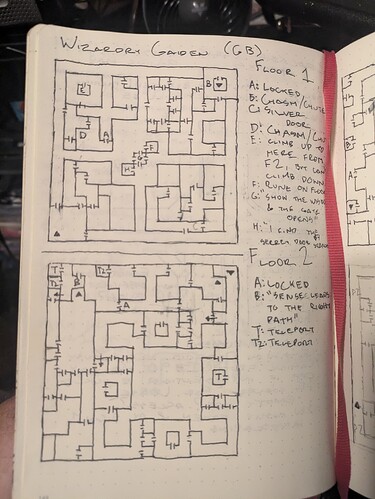 Wizardry Gaiden (GB)
Floor 1
A: Locked
B: Chasm/Chute
C: Silver
Door
D: Chasm/Chute
E: Climb up to
here from
F2, but can't
climb down
F: Rune on floor
G: "Show the
& the gate
opens"
H: "I find the
secret door
Floor 2
A: Locked
B: "Sense leads
to the right
path"
T: Teleport
T2: Teleport
C
B
D
A
F
G
E
H
T
T2
T2
B
A
T
A